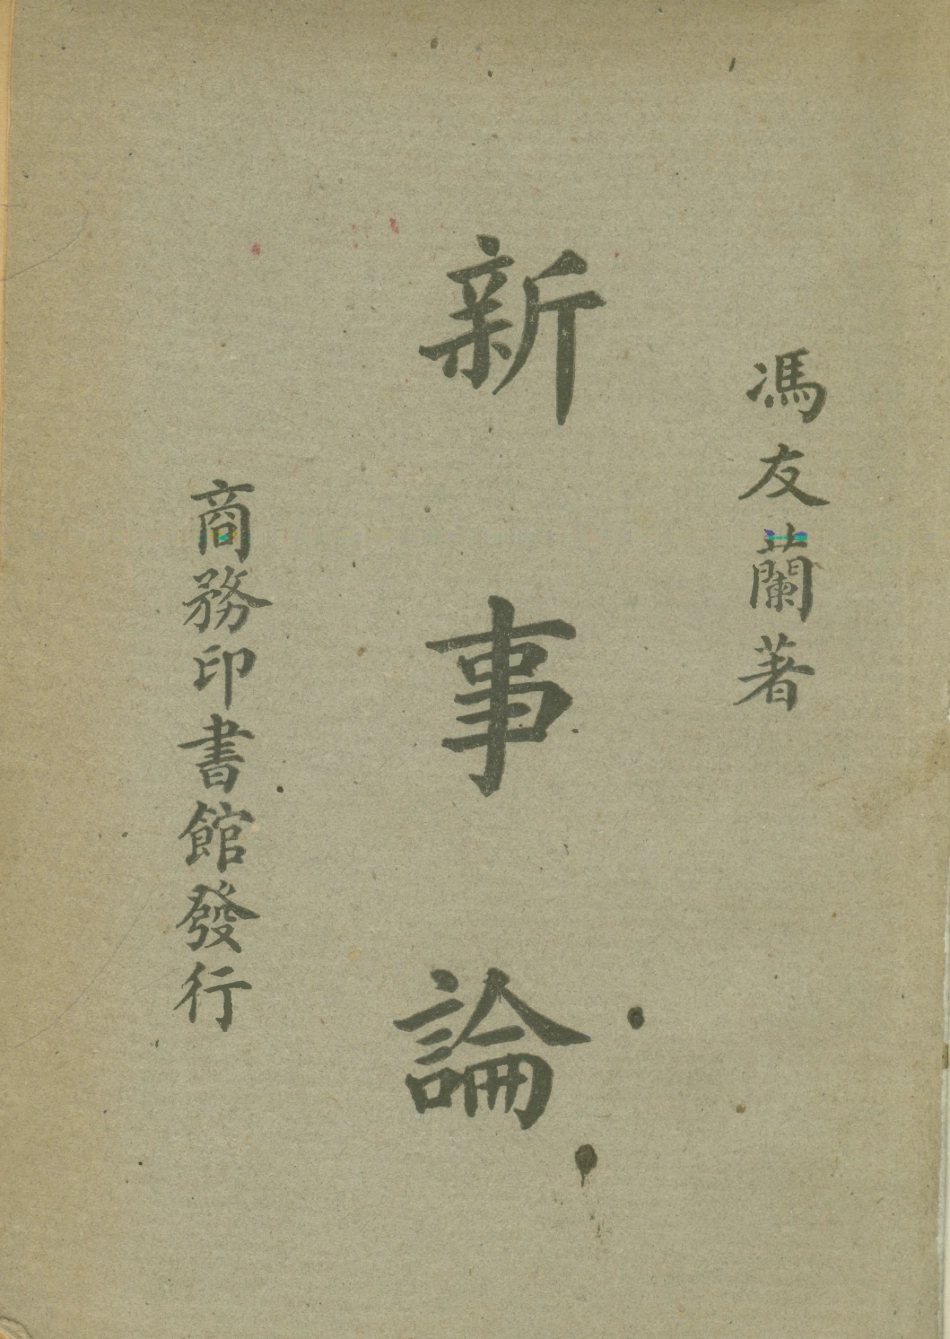 馮友蘭著
新事論
商務印書館發行